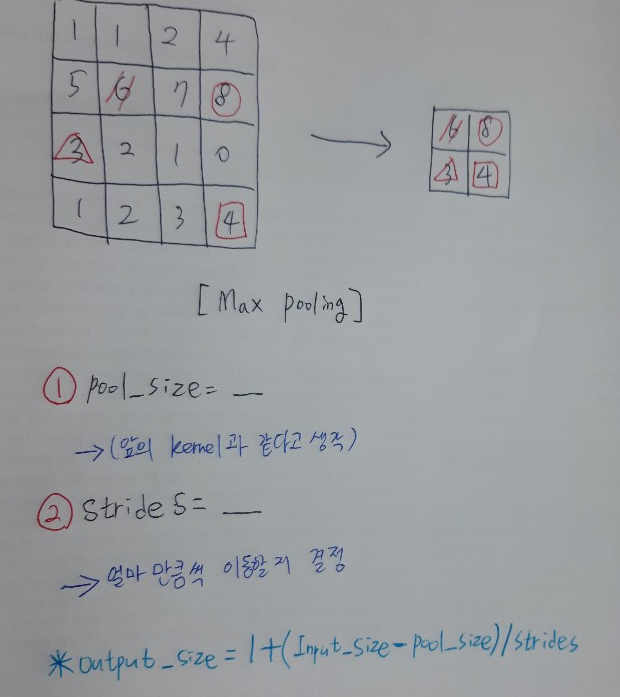 1 1 2 4
5 6 7 8
3 2 1 0
1 2 3 4
6 8
3 4
[Max pooling]
① pool_size= __
→ (앞의 kernel과 같다고 생각)
② Strides= __
→ 얼마 만큼씩 이동할지 결정
* output_size = 1+(Input_size-pool_size)/strides